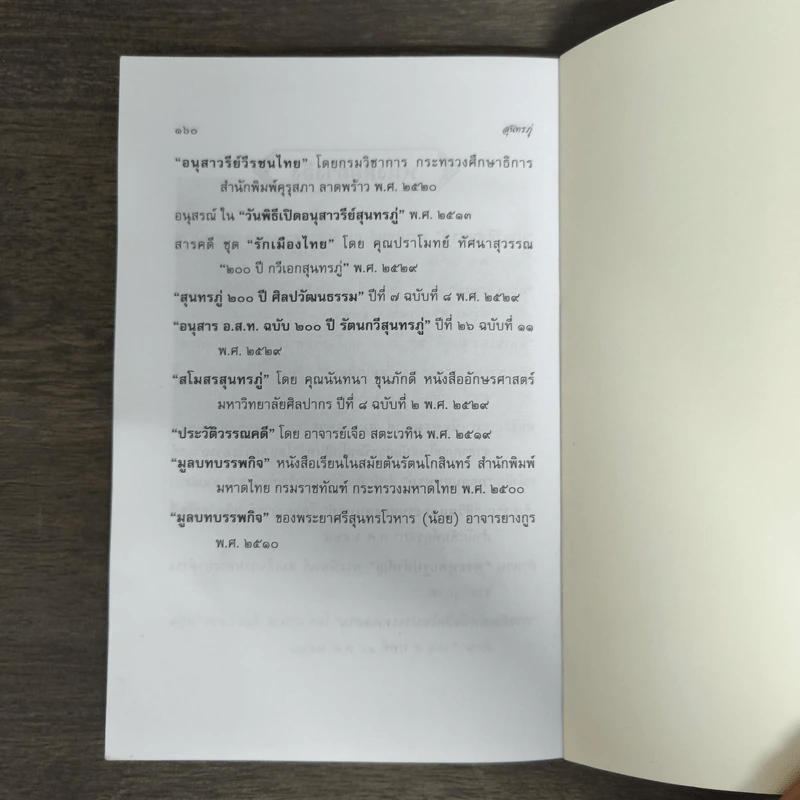 ๑๖๐ สุนทรภู่
“อนุสาวรีย์วีรชนไทย” โดยกรมวิชาการ กระทรวงศึกษาธิการ
สำนักพิมพ์คุรุสภา ลาดพร้าว พ.ศ. ๒๕๒๐
อนุสรณ์ ใน “วันพิธีเปิดอนุสาวรีย์สุนทรภู่” พ.ศ. ๒๕๑๓
สารคดี ชุด “รักเมืองไทย” โดย คุณปราโมทย์ ทัศนาสุวรรณ
“๒๐๐ ปี กวีเอกสุนทรภู่” พ.ศ. ๒๕๒๙
“สุนทรภู่ ๒๐๐ ปี ศิลปวัฒนธรรม” ปีที่ ๗ ฉบับที่ ๘ พ.ศ. ๒๕๒๙
“อนุสาร อ.ส.ท. ฉบับ ๒๐๐ ปี รัตนกวีสุนทรภู่” ปีที่ ๒๖ ฉบับที่ ๑๑
พ.ศ. ๒๕๒๙
“สโมสรสุนทรภู่” โดย คุณนันทนา ขุนภักดี หนังสืออักษรศาสตร์
มหาวิทยาลัยศิลปากร ปีที่ ๘ ฉบับที่ ๒ พ.ศ. ๒๕๒๙
“ประวัติวรรณคดี” โดย อาจารย์เจือ สตะเวทิน พ.ศ. ๒๕๑๙
“มูลบทบรรพกิจ” หนังสือเรียนในสมัยต้นรัตนโกสินทร์ สำนักพิมพ์
มหาดไทย กรมราชทัณฑ์ กระทรวงมหาดไทย พ.ศ. ๒๕๐๐
“มูลบทบรรพกิจ” ของพระยาศรีสุนทรโวหาร (น้อย) อาจารยางกูร
พ.ศ. ๒๕๑๐